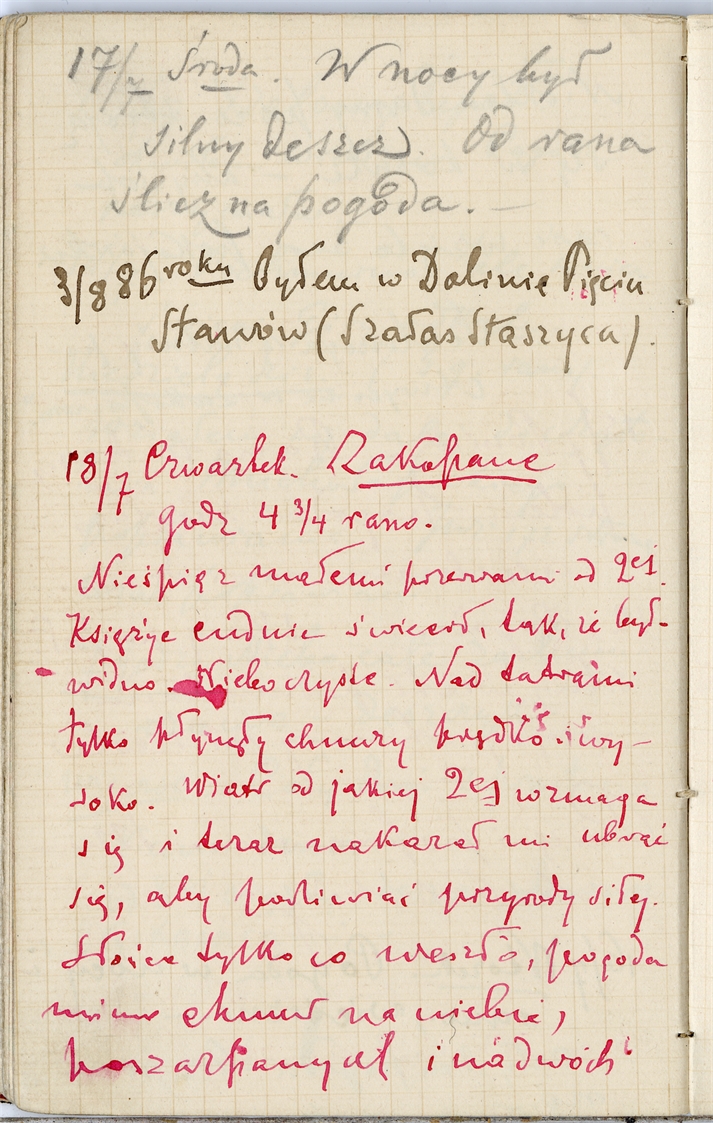 17/7 Środa. W nocy był
silny deszcz. Od rana
śliczna pogoda. —
3/8 86 roku Byłem w Dolinie Pięciu
Stawów (Szałas Staszyca).
18/7 Czwartek. Zakopane
godz 4 3/4 rano.
Nieśpię z małemi przerwami od 2ej.
Księżyc cudnie świecił, tak, że był
widno. Niebo czyste. Nad tatrami
tylko płynęły chmury prędko i wy-
soko. Wiatr od jakiej 2ej wzmaga
się i teraz nakazał mi ubrać
się, aby podziwiać przyrody siły.
Słońce tylko co weszło, pogoda
mimo chmur na niebie,
poszarpanych i nadwóch